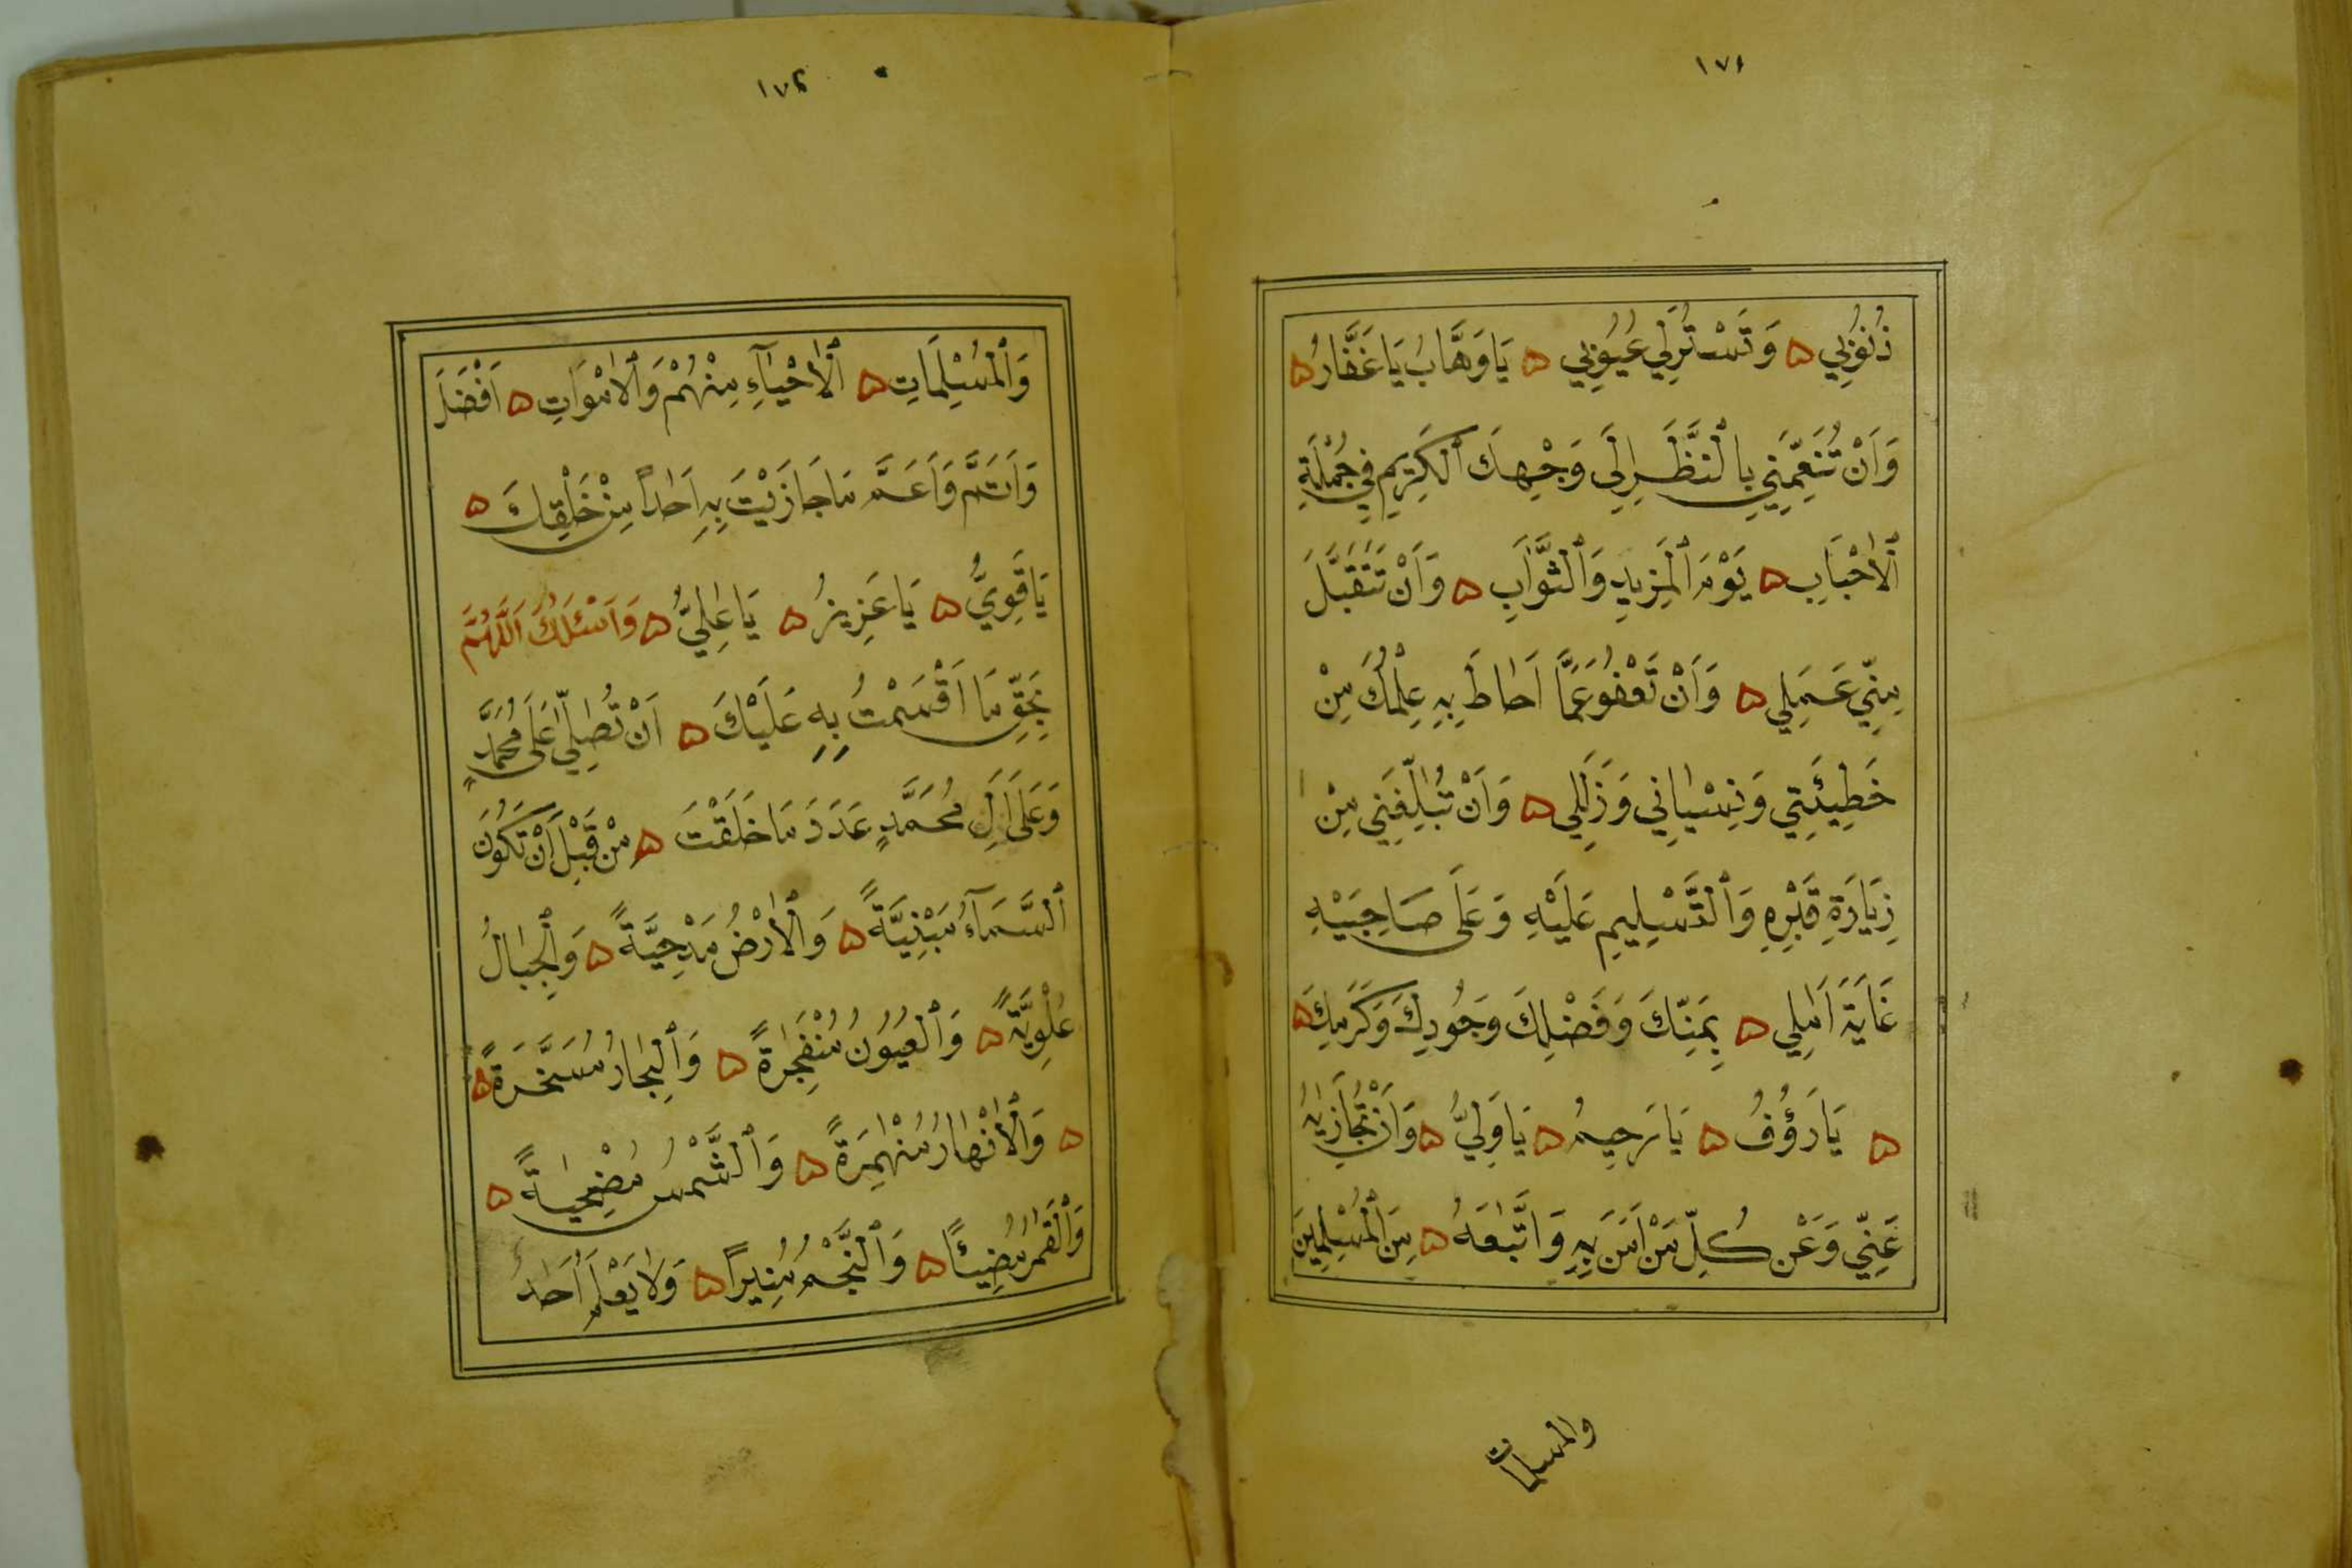 ذُنُوبِي ۞ وَتَسْتُرَ لِي عُيُوبِي ۞ يَا وَهَّابُ يَا غَفَّارُ ۞
وَاَنْ تُنَعِّمَنِي بِالنَّظَرِ اِلَى وَجْهِكَ ٱلْكَرِيمِ فِي جُمْلَةِ
ٱلْاَحْبَابِ ۞ يَوْمَ ٱلْمَزِيدِ وَٱلثَّوَابِ ۞ وَاَنْ تَتَقَبَّلَ
مِنِّي عَمَلِي ۞ وَاَنْ تَعْفُوَ عَمَّا اَحَاطَ بِهِ عِلْمُكَ مِنْ
خَطِيئَتِي وَنِسْيَانِي وَزَلَلِي ۞ وَاَنْ تُبَلِّغَنِي مِنْ
زِيَارَةِ قَبْرِهِ وَٱلتَّسْلِيمِ عَلَيْهِ وَعَلَى صَاحِبَيْهِ
غَايَةَ اَمَلِي ۞ بِمَنِّكَ وَفَضْلِكَ وَجُودِكَ وَكَرَمِكَ ۞
۞ يَا رَؤُفُ ۞ يَا رَحِيمُ ۞ يَا وَلِيُّ ۞ وَاَنْ تُجَازِيَهُ
عَنِّي وَعَنْ كُلِّ مَنْ اٰمَنَ بِهِ وَاتَّبَعَهُ ۞ مِنَ ٱلْمُسْلِمِينَ
والمسلمات
١٧٤
وَٱلْمُسْلِمَاتِ ۞ ٱلْاَحْيَآءِ مِنْهُمْ وَٱلْاَمْوَاتِ ۞ اَفْضَلَ
وَاَتَمَّ وَاَعَمَّ مَا جَازَيْتَ بِهِ اَحَدًا مِنْ خَلْقِكَ ۞
يَا قَوِيُّ ۞ يَا عَزِيزُ ۞ يَا عَلِيُّ ۞ وَاَسْئَلُكَ اَللَّهُمَّ
بِحَقِّ مَا اَقْسَمْتُ بِهِ عَلَيْكَ ۞ اَنْ تُصَلِّيَ عَلَى مُحَمَّدٍ
وَعَلَى اٰلِ مُحَمَّدٍ عَدَدَ مَا خَلَقْتَ ۞ مِنْ قَبْلِ اَنْ تَكُونَ
ٱلسَّمَآءُ مَبْنِيَّةً ۞ وَٱلْاَرْضُ مَدْحِيَّةً ۞ وَٱلْجِبَالُ
عُلْوِيَّةً ۞ وَٱلْعُيُونُ مُنْفَجِرَةً ۞ وَٱلْبِحَارُ مُسَخَّرَةً ۞
۞ وَٱلْاَنْهَارُ مُنْهَمِرَةً ۞ وَٱلشَّمْسُ مُضْحِيَةً ۞
وَٱلْقَمَرُ مُضِيئًا ۞ وَٱلنَّجْمُ مُنِيرًا ۞ وَلَا يَعْلَمُ اَحَدٌ